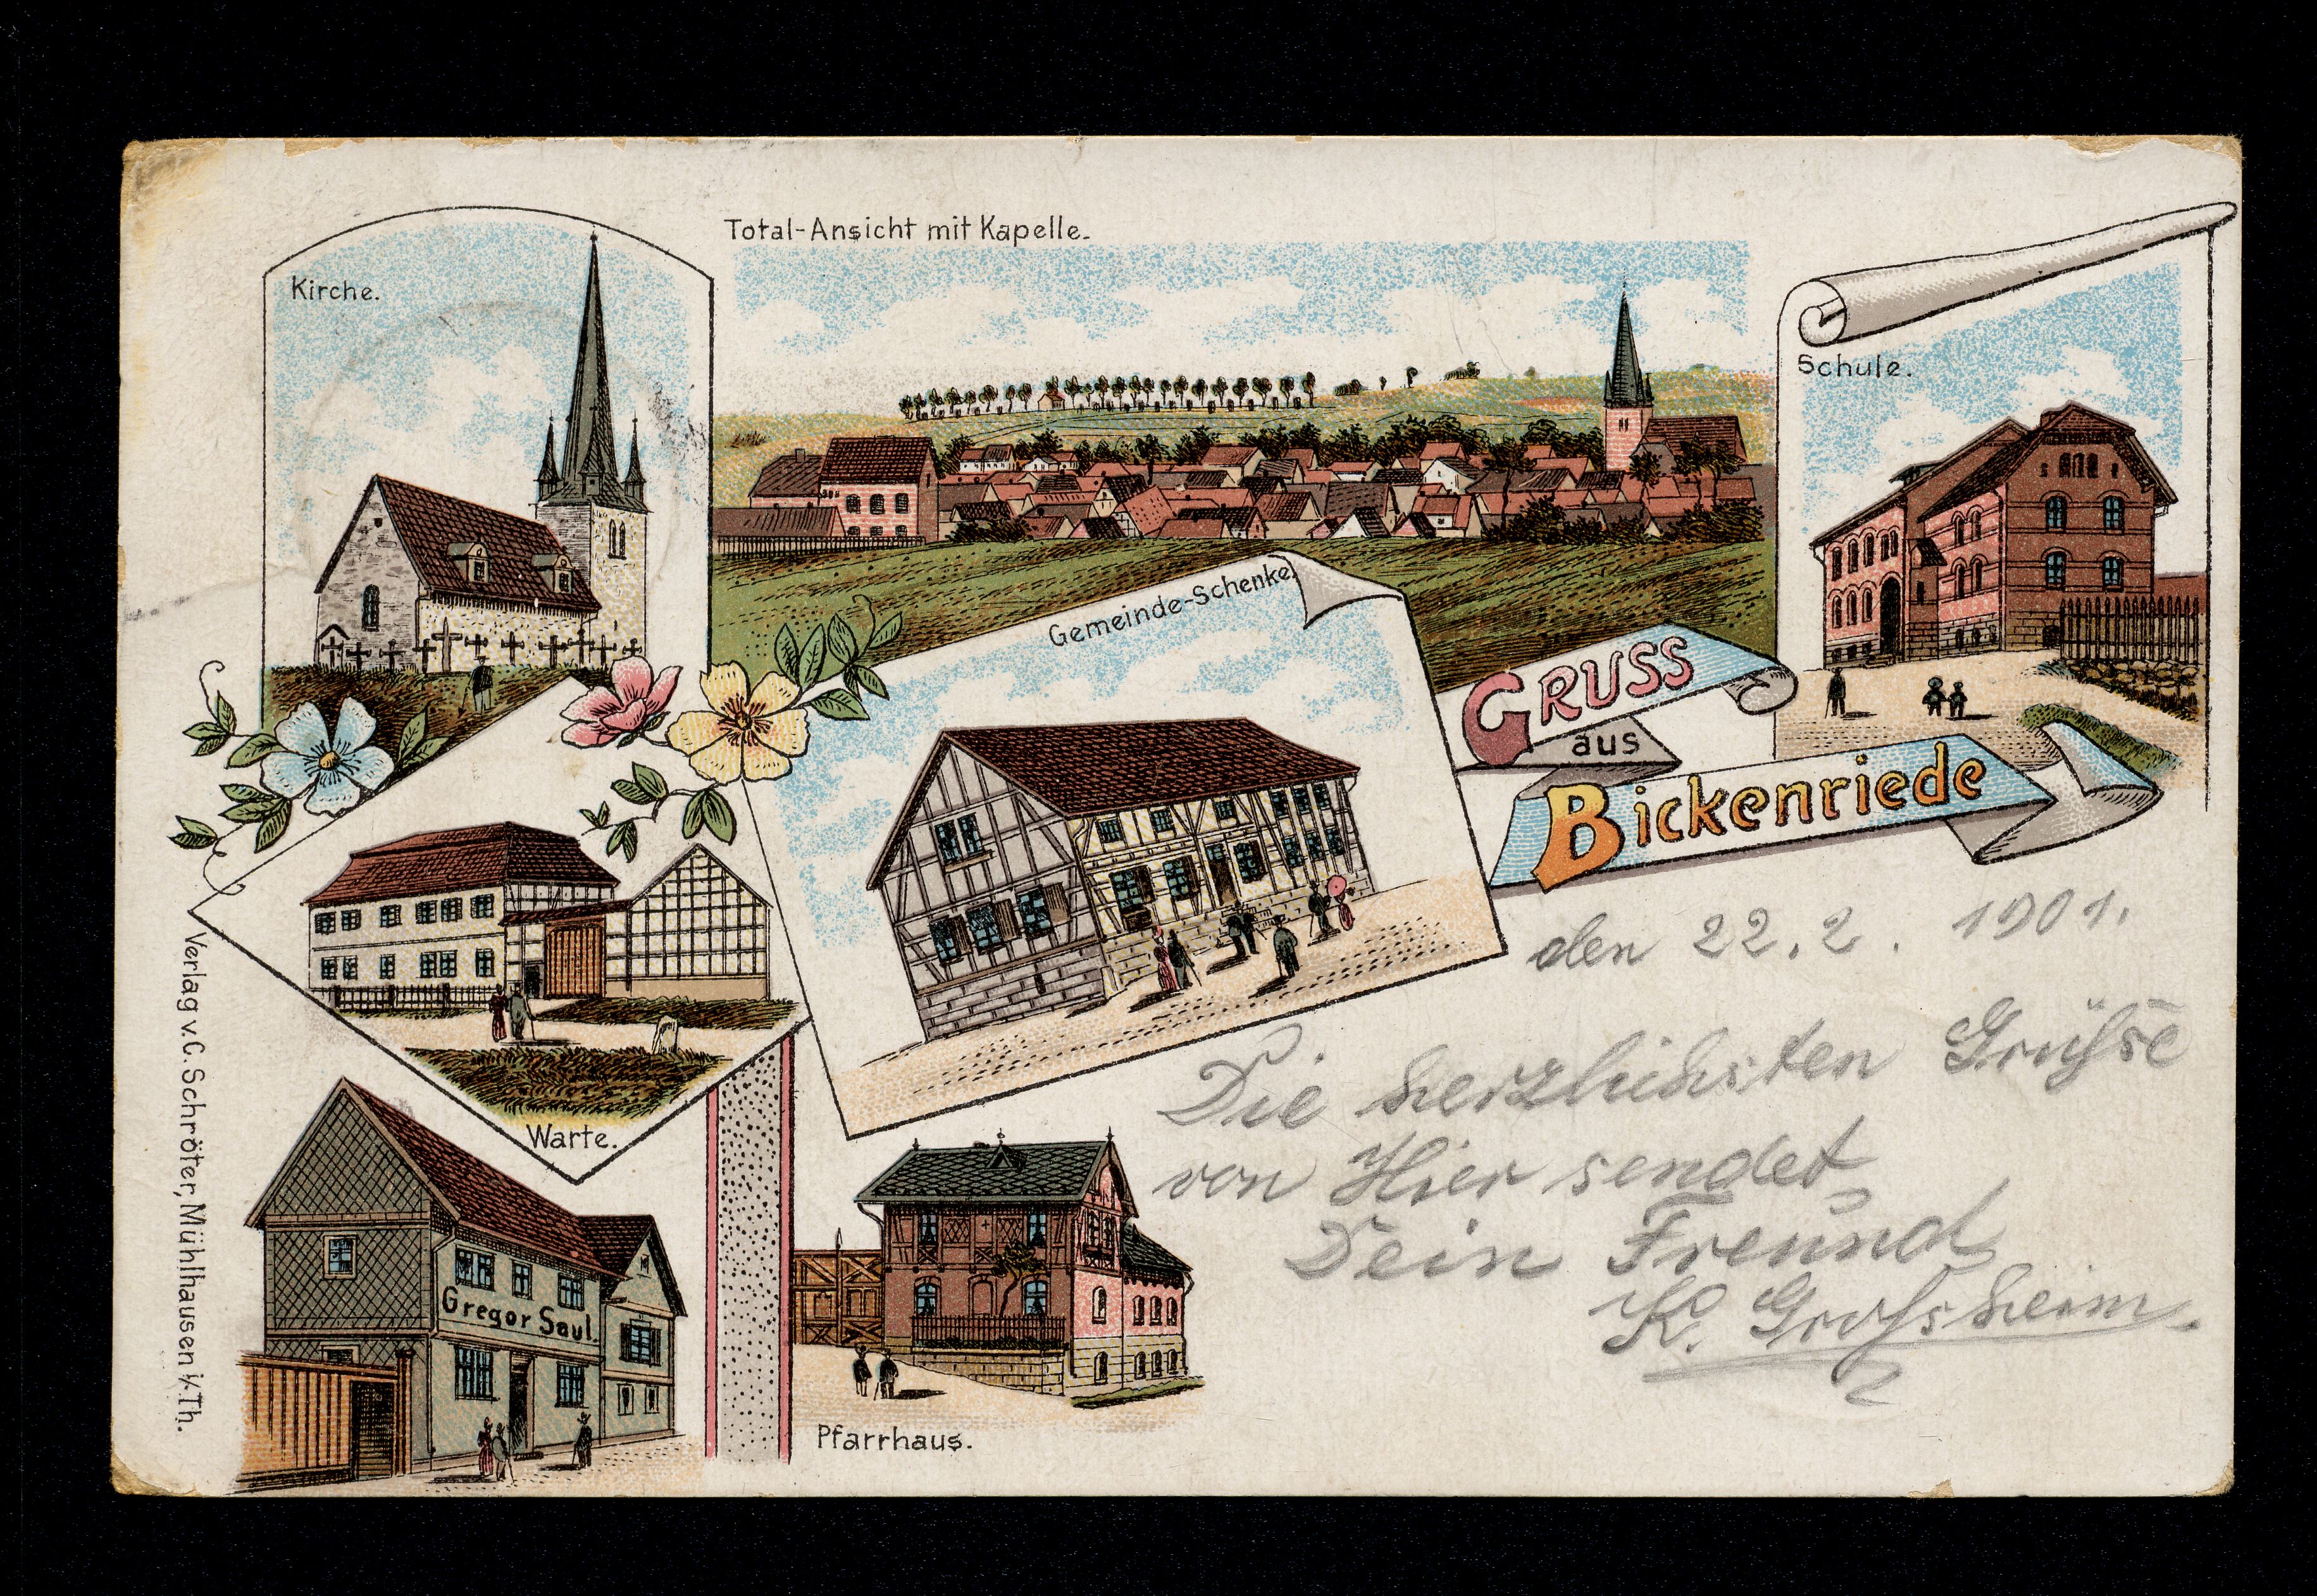 Kirche.
Total-Ansicht mit Kapelle.
Schule.
Gemeinde-Schenke.
GRUSS
aus
Bickenriede
Warte.
Gregor Saul.
Pfarrhaus.
Verlag v. C. Schröter, Mühlhausen i/Th.
den 22. 2. 1901.
Die herzlichsten Grüße
von Hier sendet
Dein Freund
K. Großheim.